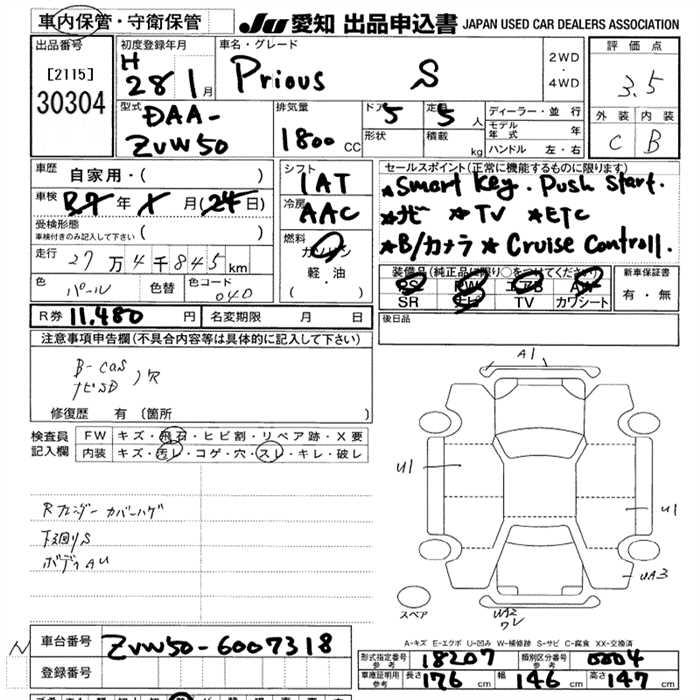 車内保管・守衛保管
JU 愛知 出品申込書 JAPAN USED CAR DEALERS ASSOCIATION
出品番号
[2115]
30304
初度登録年月
H 28 1 月
車名・グレード
Prious S
2WD
・
4WD
評価点
3.5
外装 内装
C B
型式
DAA-
ZVW50
排気量
1800 CC
ドア 5
定員 5 人
形状
積載 kg
ディーラー・並 行
モデル年式 年
ハンドル 左・右
車歴
自家用・( )
車検
R7 年 X 月(24日)
受検形態
車検付きのみ記入して下さい ( )
走行 27万4千845km
色 パール 色替 色コード 040
シフト
IAT
冷房
AAC
燃料
ガソリン
軽・油
( ・ )
セールスポイント(正常に機能するものに限ります)
★Smart Key. Push Start.
★ナビ ★TV ★ETC
★B/カメラ ★Cruise Controll.
装備品(純正品に限り○をつけてください)
PS PW エアB AW
SR ナビ TV カワシート
新車保証書
有・無
R券 11,480 円 名変期限 月 日
後日品
注意事項申告欄(不具合内容等は具体的に記入して下さい)
B-cas
ナビSD
修復歴 有(箇所 )
検査員
記入欄
FW キズ・飛石・ヒビ割・リペア跡・X要
内装 キズ・汚レ・コゲ・穴・スレ・キレ・破レ
Rフェンダーカバーハゲ
下廻りS
ボディAU
A1
U1
U1
UA3
UA2
ワレ
スペア
A-キズ E-エクボ U-凹み W-補修跡 S-サビ C-腐食 XX-交換済
車台番号 ZVW50-6007318
登録番号
型式指定番号
参考
18207
類別区分番号
参考
0004
車庫証明用
参考
長さ 176 cm 幅 146 cm 高さ 147 cm